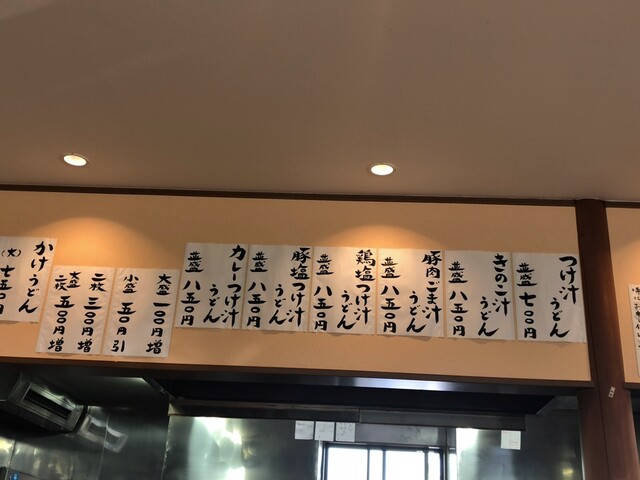 つけ汁
うどん
並盛 七〇〇円
きのこ汁
うどん
並盛 八五〇円
豚肉ごま汁
うどん
並盛 八五〇円
鶏塩つけ汁
うどん
並盛 八五〇円
豚塩つけ汁
うどん
並盛 八五〇円
カレーつけ汁
うどん
並盛 八五〇円
大盛 一〇〇円増
小盛 五〇円引
二枚 三〇〇円増
大盛二枚 五〇〇円増
かけうどん
七五〇円